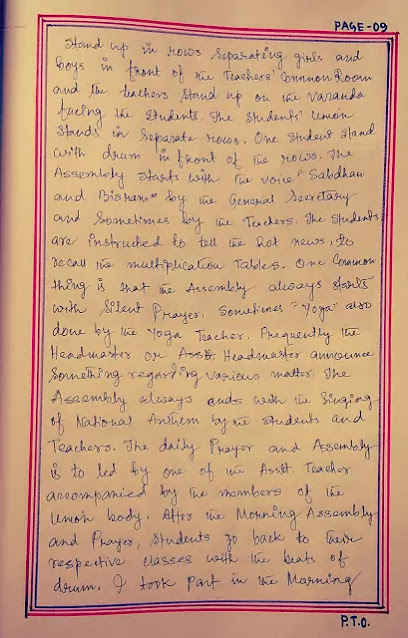 PAGE-09
Stand up in rows separating girls and
boys in front of the Teachers' Common Room
and the teachers stand up on the Varanda
facing the students. The students' Union
stands in separate rows. One student stand
with drum in front of the rows. The
Assembly starts with the voice "Sabdhan
and Bisram" by the General Secretary
and sometimes by the Teachers. The students
are instructed to tell the hot news, to
recall the multiplication Tables. One Common
thing is that the Assembly always starts
with Silent Prayer. Sometimes "Yoga" also
done by the Yoga Teacher. Frequently the
Headmaster or Asstt. Headmaster announce
something regarding various matter. The
Assembly always ends with the singing
of National Anthem by the students and
Teachers. The daily Prayer and Assembly
is to led by one of the Asstt. Teacher
accompanied by the members of the
Union body. After the Morning Assembly
and Prayer, students go back to their
respective classes with the beats of
drum. I took part in the Morning
P.T.O.